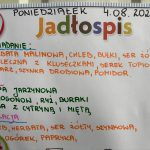 PONIEDZIAŁEK 4.08.202
Jadłospis
ADANIE:
HERBATA MALINOWA, CHLEB, BUŁKI, SER ŻÓŁ
MLECZNA Z KLUSECZKAMI, SEREK TOPIO
SZYNKA DROBIOWA, POMIDOR
JARZYNOWA
RYŻ, BURAKI
Z CYTRYNĄ I MIĘTĄ
ACJA
HERBATA, SER ŻÓŁTY, SZYNKOWA,
OGÓREK, PAPRYKA,